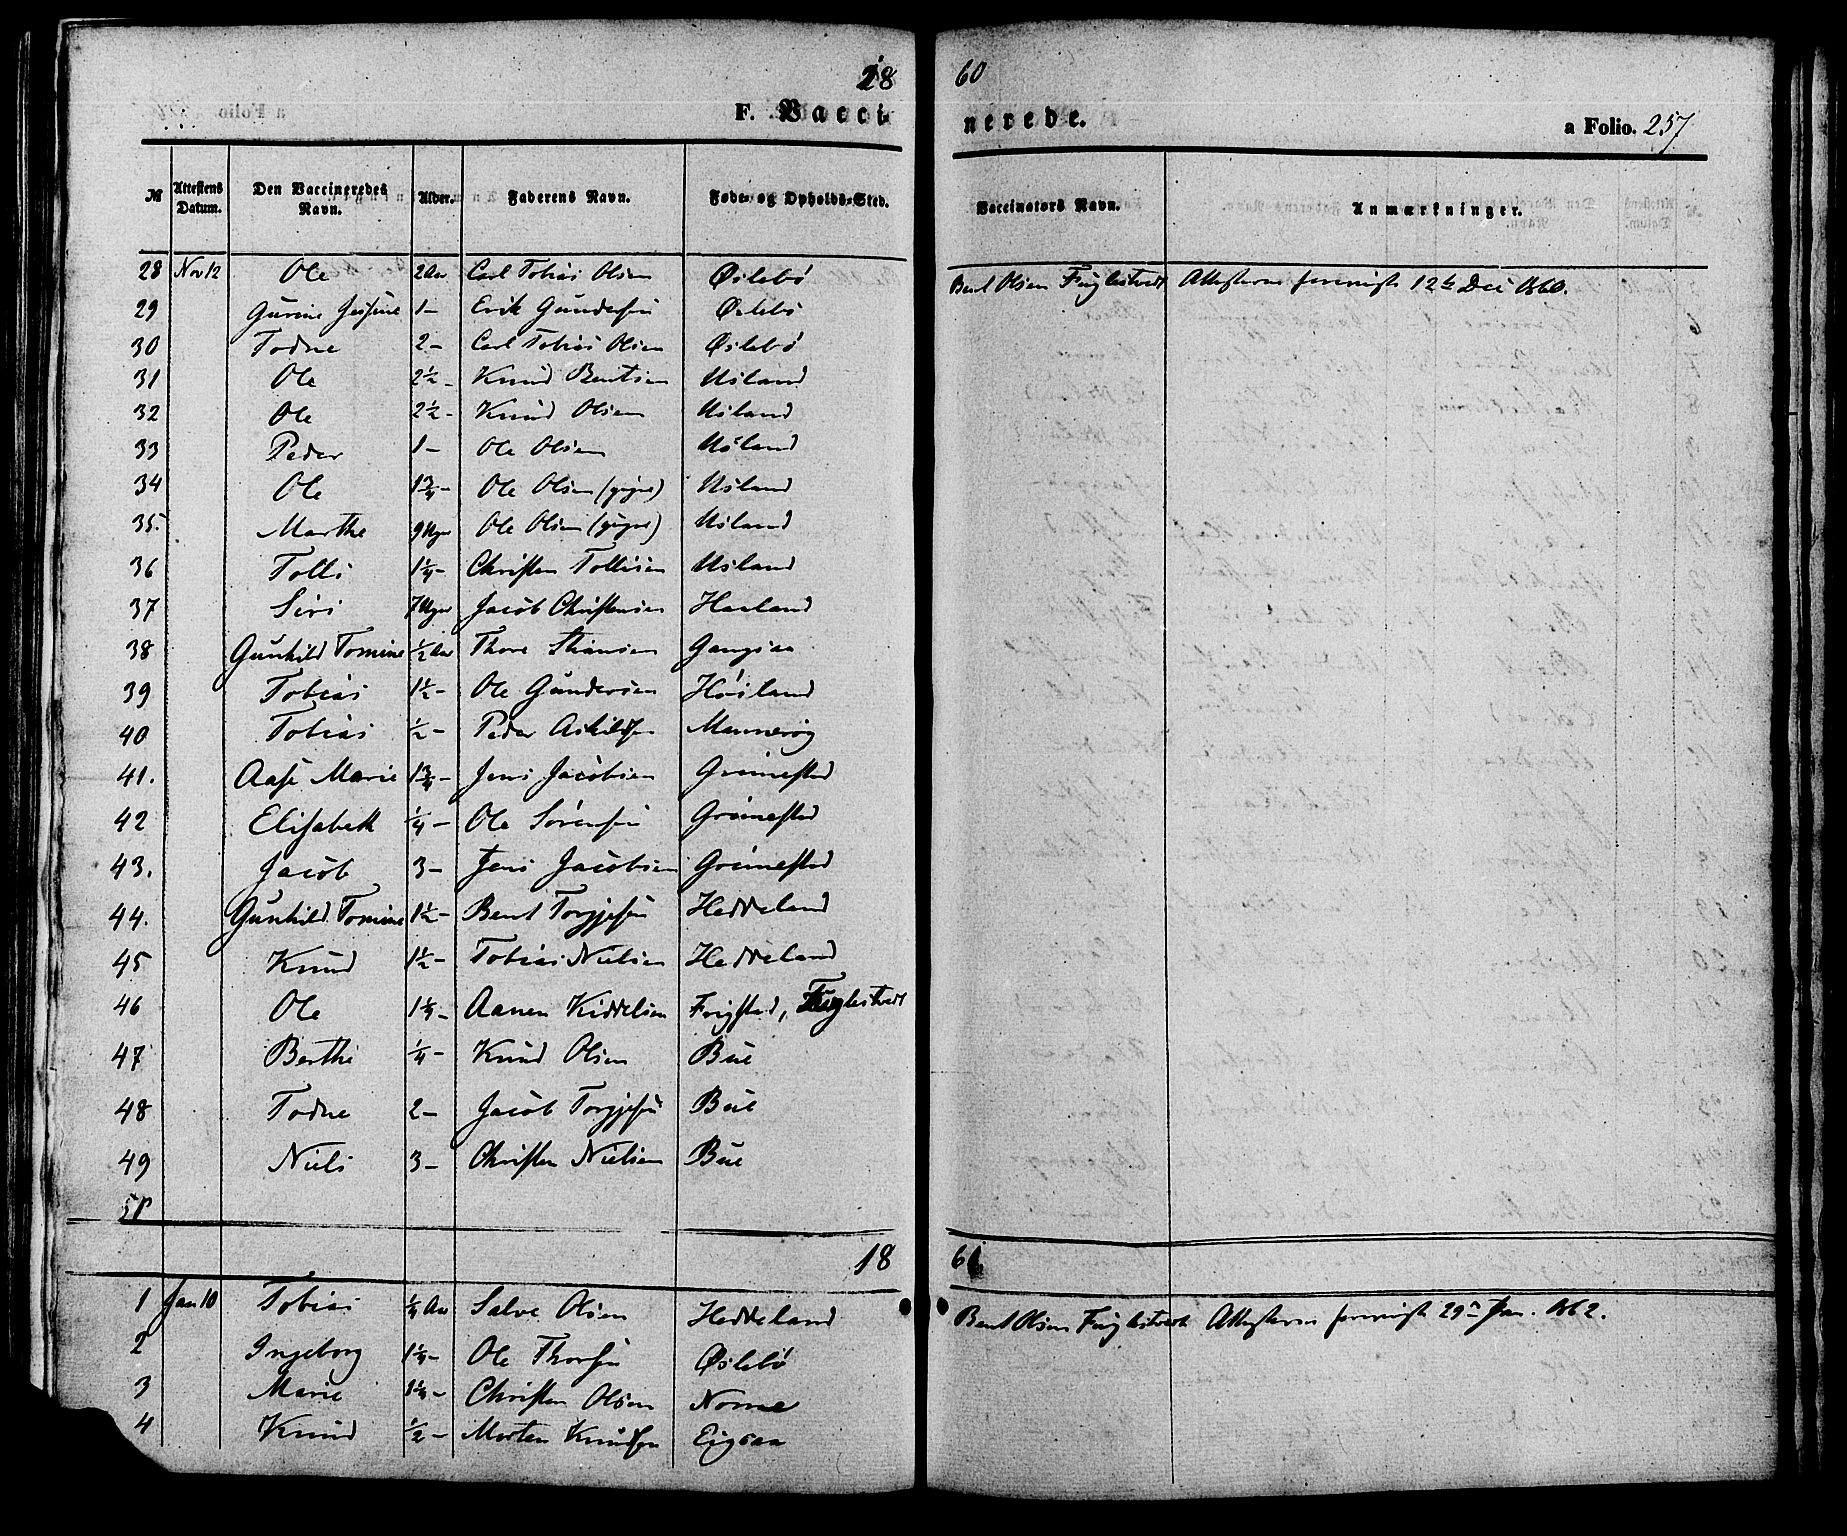 18 60
F. Vaccinerede. a Folio. 257
№ Attestens Datum. Den Vaccineredes Navn. Alder. Faderens Navn. Føde- og Opholds-Sted. Vaccinators Navn. Anmærkninger.
28 Nov 12 Ole 2 Aar Carl Tobias Olsen Øslebø Bent Olsen Fuglestvedt Attesterne forevist 12te Dec 1860.
29 Gurine Josfine 1 - Erik Gundersen Øslebø
30 Todne 2 - Carl Tobias Olsen Øslebø
31 Ole 2½ - Knud Bentsen Usland
32 Ole 2½ - Knud Olsen Usland
33 Peder 1 - Ole Olsen Usland
34 Ole 1¾ - Ole Olsen (yngre) Usland
35. Marthe 9 Uger Ole Olsen (yngre) Usland
36 Tolls 1¼ - Christen Tollisen Usland
37 Siri 7 Uger Jacob Christensen Haaland
38 Gunhild Tomine ½ Aar Thore Stiansen Gangsaa
39 Tobias 1½ - Ole Gundersen Høiland
40 Tobias ½ - Peder Askildsen Mannerøg
41. Aase Marie 1¾ - Jens Jacobsen Greimestad
42 Elisabeth ¼ - Ole Sørensen Greimestad
43. Jacob 3 - Jens Jacobsen Greimestad
44. Gunhild Tomine 1½ - Bent Torgjesen Heddeland
45 Knud 1½ - Tobias Nielsen Heddeland
46 Ole 1¼ - Aanen Kiddelsen Frigstad, Fuglestvedt
47 Berthe ¼ - Knud Olsen Bue
48 Todne 2 - Jacob Torgjesen Bue
49 Niels 3 - Christen Nielsen Bue
18 61
1 Jan 10 Tobias ¼ Aar Salve Olsen Heddeland Bent Olsen Fuglestvedt Attesterne forevist 29de Jan. 1862.
2 Ingeborg 1¼ - Ole Thorsen Øslebø
3 Marie 1¼ - Christen Olsen Nome
4 Knud ½ - Morten Knudsen Eigsaa